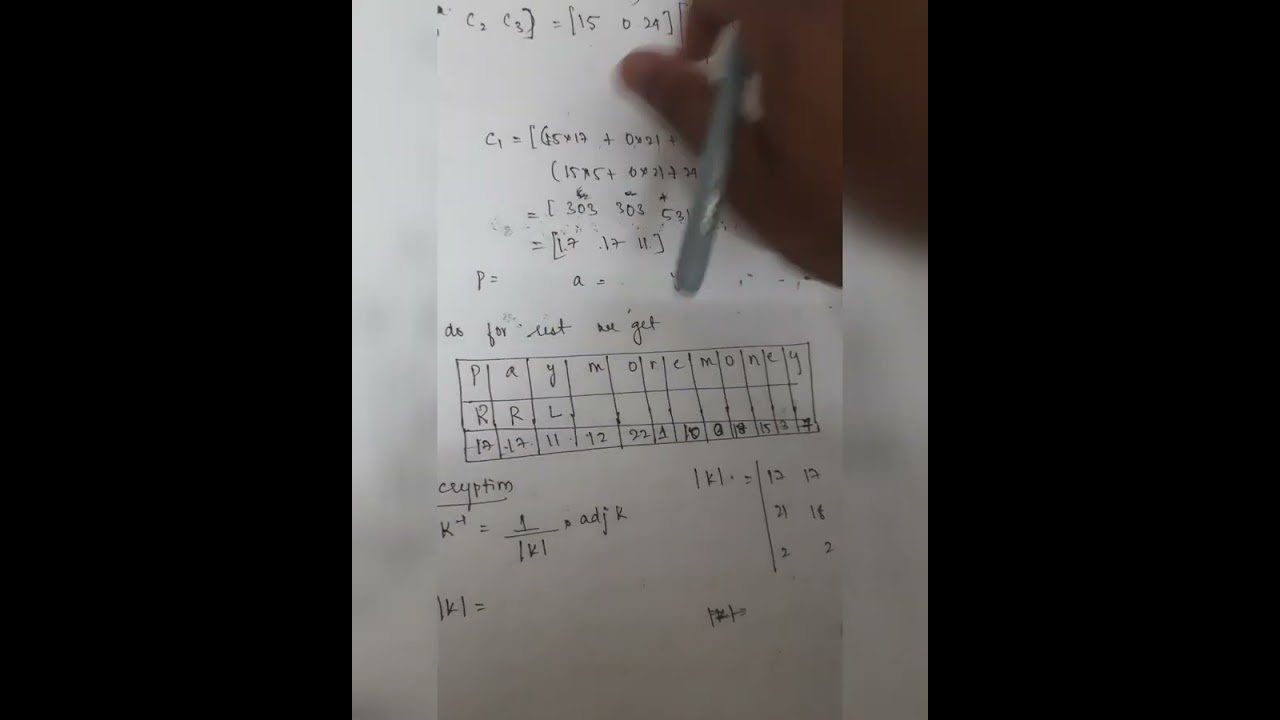 C2 C3] = [15 0 24] [
C1 = [(15×17 + 0×21 +
(15×5 + 0×21 + 24
= [ 303 303 531
= [17 17 11]
P = a = y
do for rest we get
P a y m o r e m o n e y
R R L
17 17 11 12 22 1 10 0 18 15 3 7
cryptim
K-1 = 1 / |K| × adj K
|K| = | 17 17
21 18
2 2
|K| =